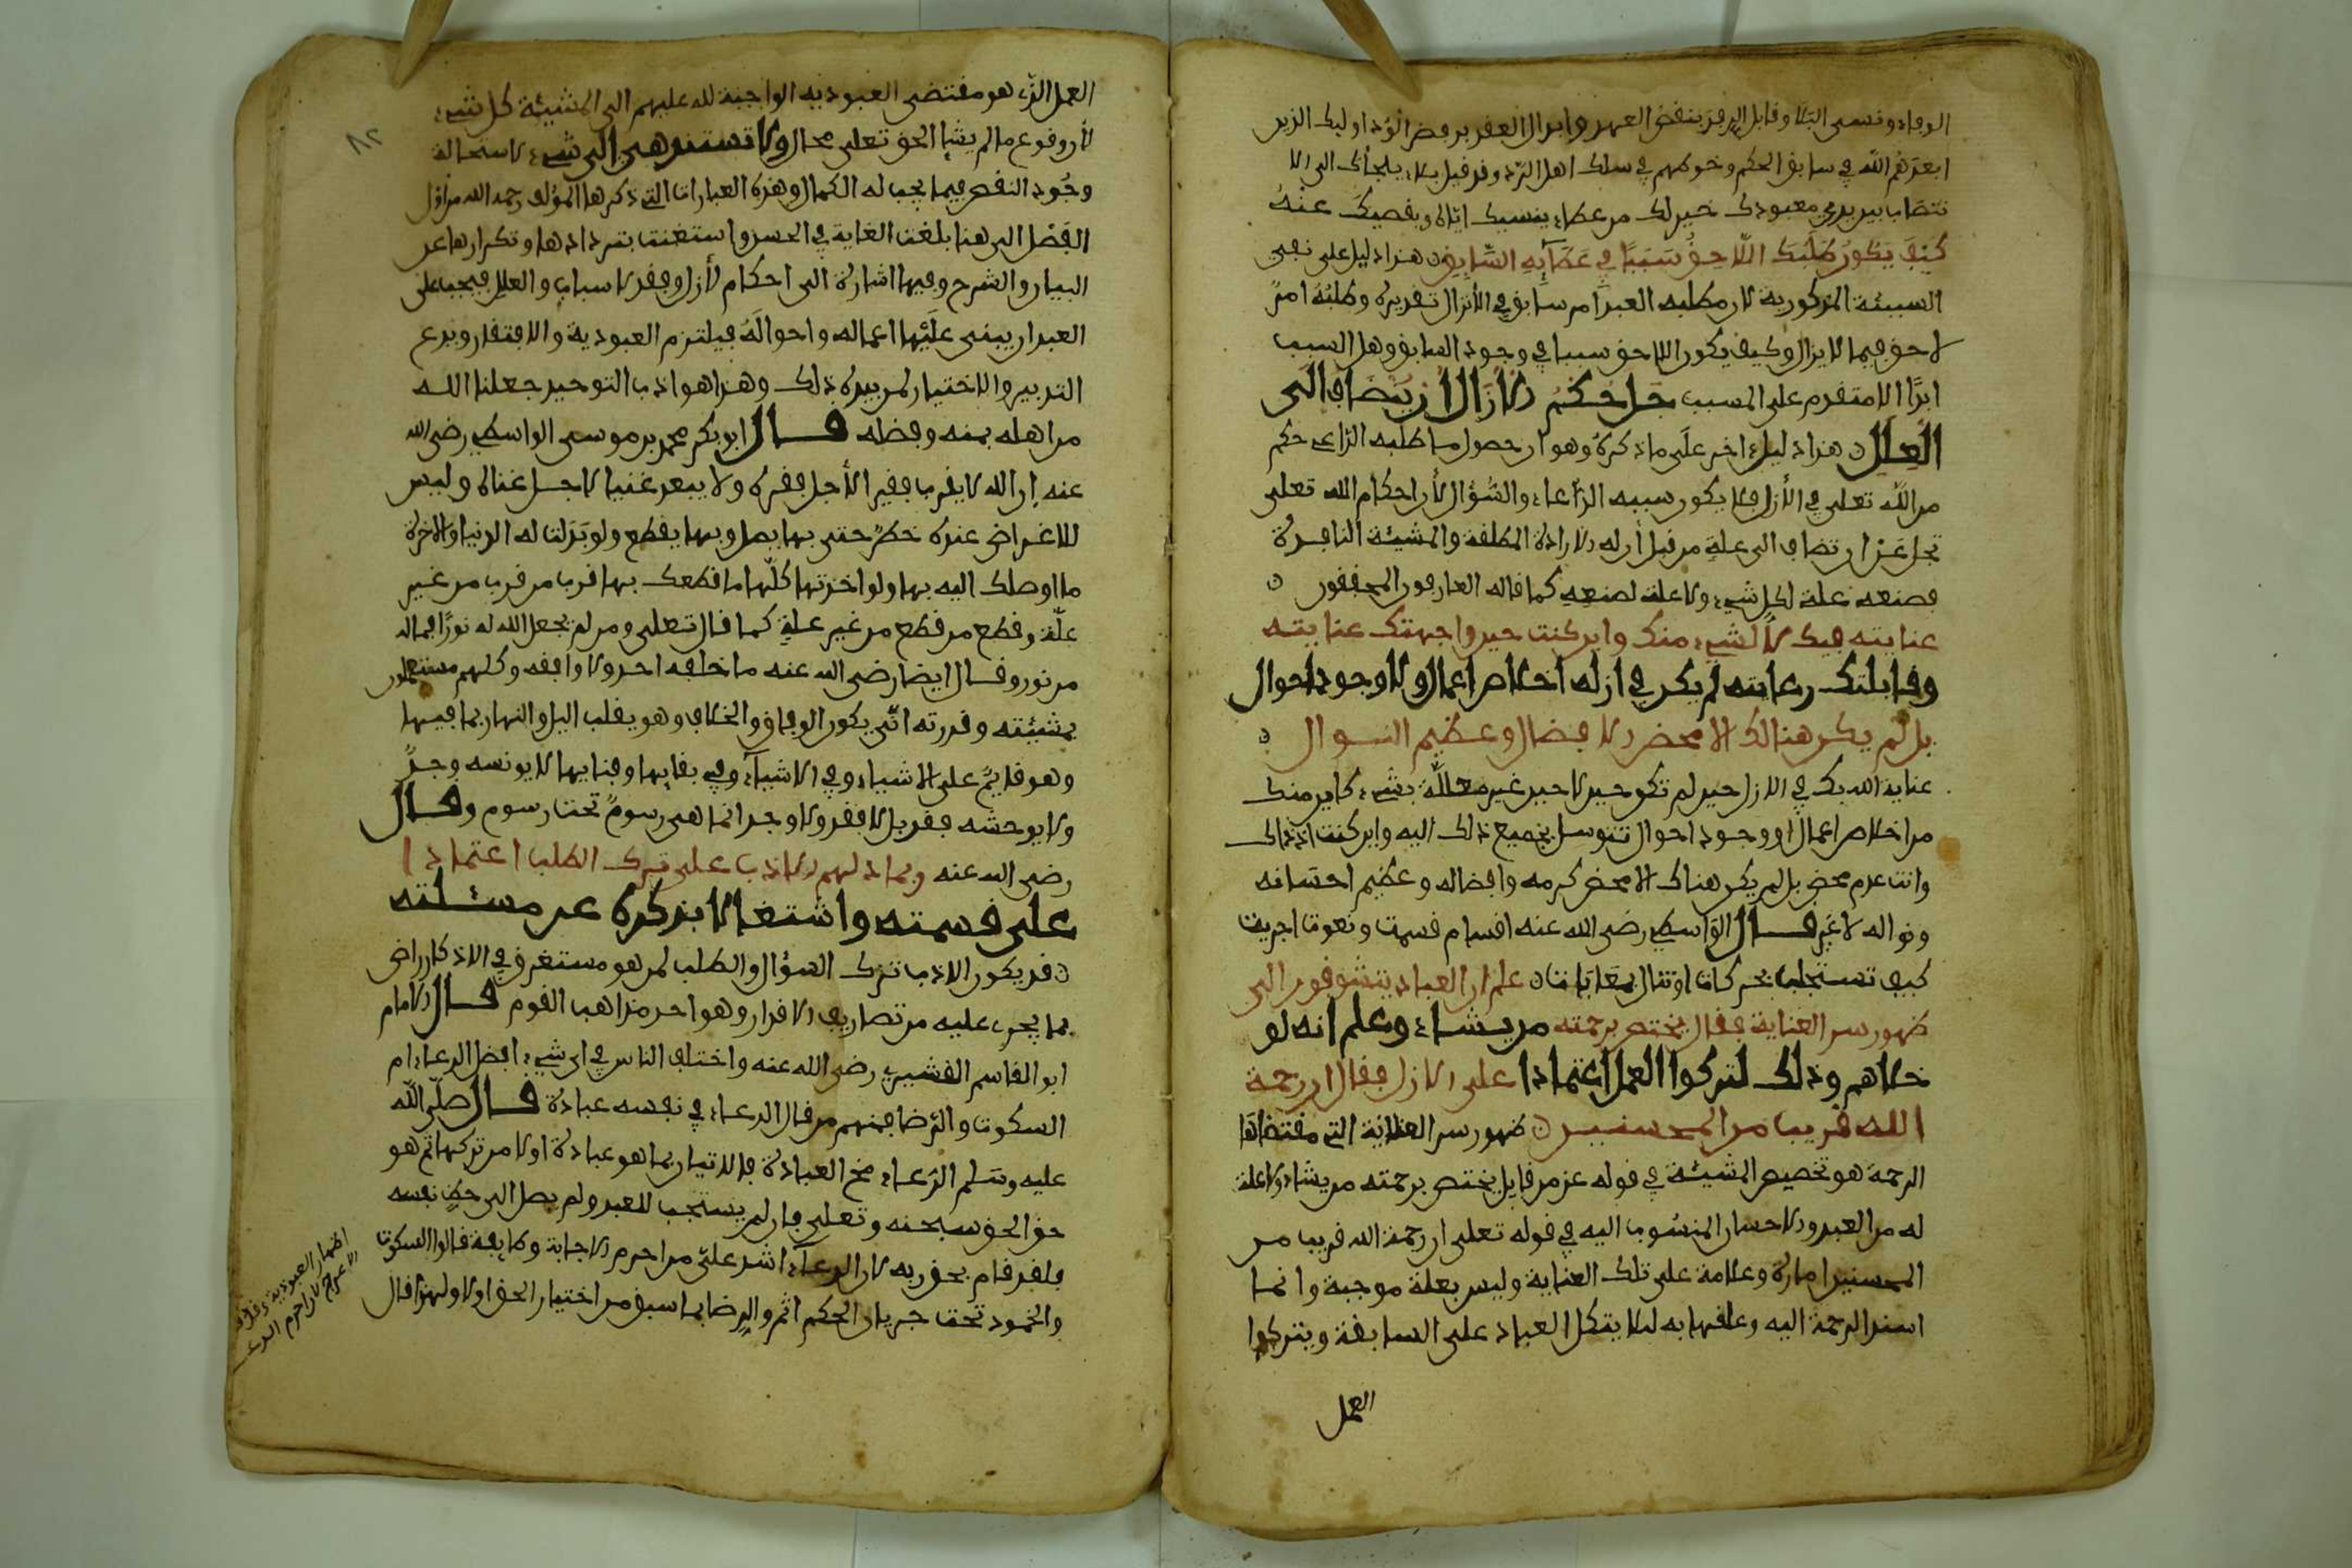 الوفاء ونسى البلا وقابل الرفد بنقض العهد وابدال العقد برفض الود اوليك الذين
ابعدهم الله في سابق الحكم وخوطهم في سلك اهل الرد وقد قيل بلاء يلجأك الى الا
نتصاب بين يدي معبودك خير لك من عطاء ينسيك اياه ويقصيك عنه
كَيْفَ يَكُونُ طَلَبُكَ اللَّاحِقُ سَبَبًا في عَطَآئِهِ السَّابِقِ هذا دليل على نفي
السببية المذكورية لان مطلبه العبد امر سابق في الأزل تقديره وطلبُه امرٌ
لاحق فيما لا يزال وكيف يكون اللاحق سببا في وجود السابق وهل السبب
ابدًا الا متقدم على المسبب جَلَّ حُكْمُ الازَالِ ان يُنضَافَ الَى
العِلَلِ هذا دليل اخر علَى ما ذكره وهو ان حصول ما طلبه الداعي حكم
من اللَّه تعلى في الأزل فلا يكون سببه الدّعاء والسُّؤال لأن احكام الله تعلى
تجل عَن ان تضاف الى علةٍ من قبل أن له الارادة المطلقة والمشيئة النافذة
فصنعه علة لكل شيء ولا علة لصنعه كما قاله العارفون المحققون
عنايته فيك لا لشيء منك واين كنت حين واجهتك عنايته
وقابلتك رعايته لم يكن في ازله اخلاص اعمال ولا وجود احوال
بل لم يكن هنالك الا محض الافضال وعظيم النوال
عناية الله بك في الازل حين لم تكو حين لا حين غير معللة بشيء كاين منك
من اخلاص اعمال او وجود احوال تتوسل بجميع ذلك اليه واين كنت اذ ذاك
وانت عدم محض بل لم يكن هناك الا محض كرمه وافضاله وعظيم احسانه
ونواله لا غير قال الواسطي رضي الله عنه اقسام قسمت ونعوت اجريت
كيف تستجلب بحركات او تنال بمعايَات علم ان العباد يتشوفون الى
ظهور سر العناية فقال يختص برحمته من يشاء وعلم انه لو
خلاهم وذلك لتركوا العمل اعتمادا على الازل فقال ان رحمة
الله قريب من المحسنين ظهور سر العناية التي مقتضاها
الرحمة هو تخصيص المشيئة في قوله عز من قايل يختص برحمته من يشاء ولا علة
له من العبد والاحسان المنسُوب اليه في قوله تعلى ان رحمة الله قريب من
المحسنين امارة وعلامة على تلك العناية وليس بعلة موجبة وانما
اسند الرحمة اليه وعلقها به ليلا يتكل العباد على السابقة ويتركوا
العمل
٨٢
العمل الذي هو مقتضى العبوديه الواجبة لله عليهم الى المشيئة كل شيء
لأن وقوع ما لم يشإ الحق تعلى محال ولا تستند هي الى شيء لاستحالة
وجُود النقص فيما يجب له الكمال وهذه العبارات التي ذكرها المؤلف رحمه الله من اول
الفصل الى هنا بلغت الغاية في الحسن واستغنت بتردادها وتكرارها عن
البيان والشرح وفيها اشارة الى احكام الأزل وفقد الاسباب والعلل فيجب على
العبد ان يبني علَيْها اعماله واحوالَهُ فيلتزم العبودية والافتقار ويدع
التدبير والاختيار لمن بيده ذلك وهذا هو ادب التوحيد جعلنا اللـه
من اهله بمنه وفضله قــال ابو بكر محمد بن موسى الواسطي رضي الله
عنه ان الله لا يقرب فقيرا لأجل فقره ولا يبعد غنيا لاجل غناه وليس
للاعراض عنده خطرٌ حتى بها يصل وبها يقطع ولو بَذَلت له الدنيا والاخرة
ما اوصلك اليه بها ولو اخذتها كلّها ما قطعك بها قرب من قرب من غير
علّة وقطع من قطع من غير علةٍ كما قال تعلى ومن لم يجعل الله له نورًا فما له
من نور وقــال ايضا رضي الله عنه ما خلفه احد ولا وافقه وكلهم مستعملون
بمشيئته وقدرته انّى يكون الوفاق والخلاف وهو يقلب اليل والنهار بما فيها
وهو قايمٌ على الاشياء وفي الاشياء وفي بقايها وفنايها لا يونسه وجدٌ
ولا يوحشه فقد بل لا فقد ولا وجد انما هي رسومٌ تحت رسوم وقــال
رضي الله عنه وبما دلهم الادب على ترك الطلب اعتمادا
على قسمته واشتغالا بذكره عن مسئلته
قد يكون الادب ترك السؤال والطلب لمن هو مستغرق في الاذكار راض
بما يجري عليه من تصاريف الاقدار وهو احد مذاهب القوم قــال الامام
ابو القاسم القشيري رضي الله عنه واختلف الناس في اي شيء افضل الدعاء ام
السكوت والرّضا فمنهم من قال الدعاء في نفسه عبادة قــال صلّى الله
عليه وسَلم الدّعاء مخ العبادة فالاتيان بما هو عبادة اولا من تركها ثم هو
حق الحق سبحنه وتعلى فان لم يستجب للعبد ولم يصل الى حظ نفسه
فلقد قام بحق ربه لان الدعآء اشد علَيّ من احرم الاجابة وطايفة قالوا السكوت
والخمود تحت جريان الحكم اتم والرضا بما سبق من اختيار الحق اولا ولهذا قال
اظهار العبودية وقد قال
الاعرج لان احرم الدعـ